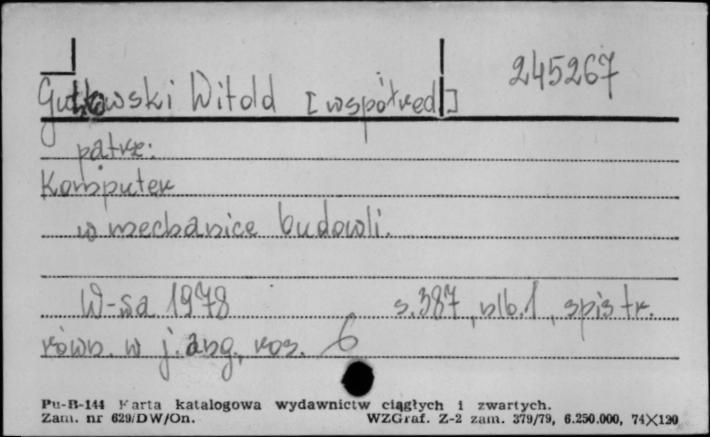 245267
Gutkowski Witold [współred]
patrz:
Komputer
w mechanice budowli.
W-wa 1978 s.387, nlb.1, spis tr.
równ. w j. ang., ros. 6
Pu-B-144 Karta katalogowa wydawnictw ciągłych i zwartych.
Zam. nr 629/DW/On. WZGraf. Z-2 zam. 379/79, 6.250.000, 74X120